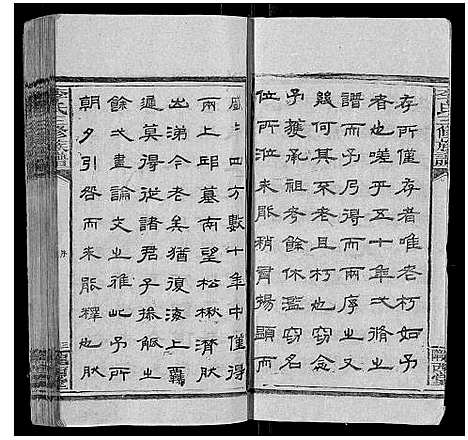 存所僅存者唯老朽如予
者也嗟乎三五十年弌脩之
譜而予乃得而兩序之又
幾何其不老且朽也竊念
予獲承祖考餘休濫竊名
位所位未能稍膺揚顯而
周㆓四方數十年中僅得
兩上邱墓南望松楸濟肰
出涕今老矣猶復淹上羈
遲莫得從諸君子操觚之
餘弌畫論文之雅此予所
朝夕引咎而未能釋也肰
李氏三修族譜
序
三
隴西堂